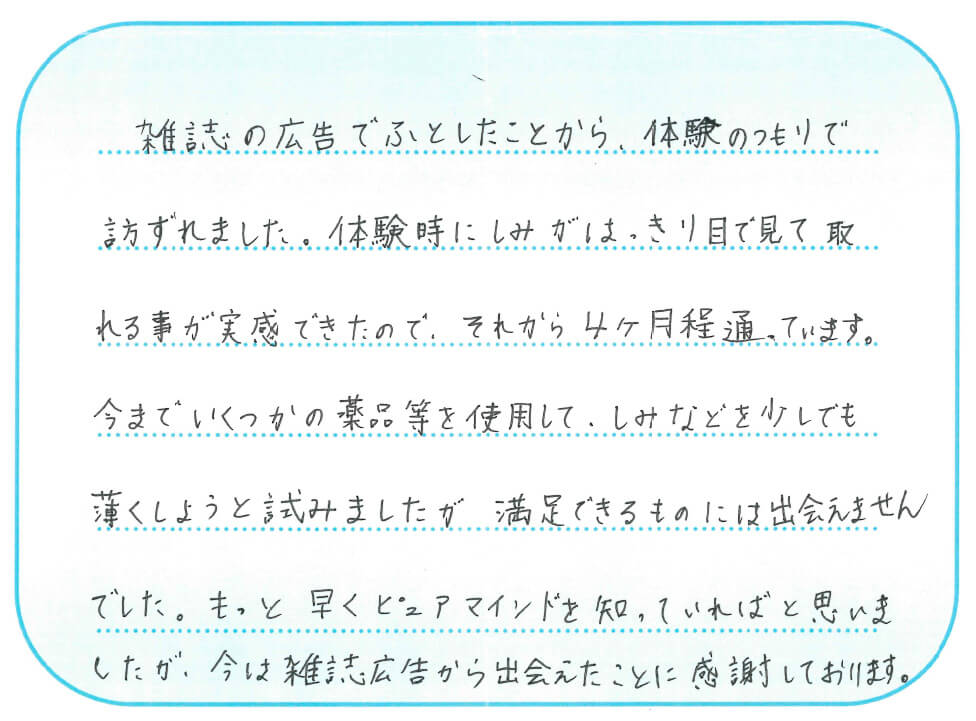 雑誌の広告でふとしたことから、体験のつもりで
訪ずれました。体験時にしみがはっきり目で見て取
れる事が実感できたので、それから4ケ月程通っています。
今までいくつかの薬品等を使用して、しみなどを少しでも
薄くしようと試みましたが 満足できるものには出会えません
でした。もっと早くピュアマインドを知っていればと思いま
したが、今は雑誌広告から出会えたことに感謝しております。